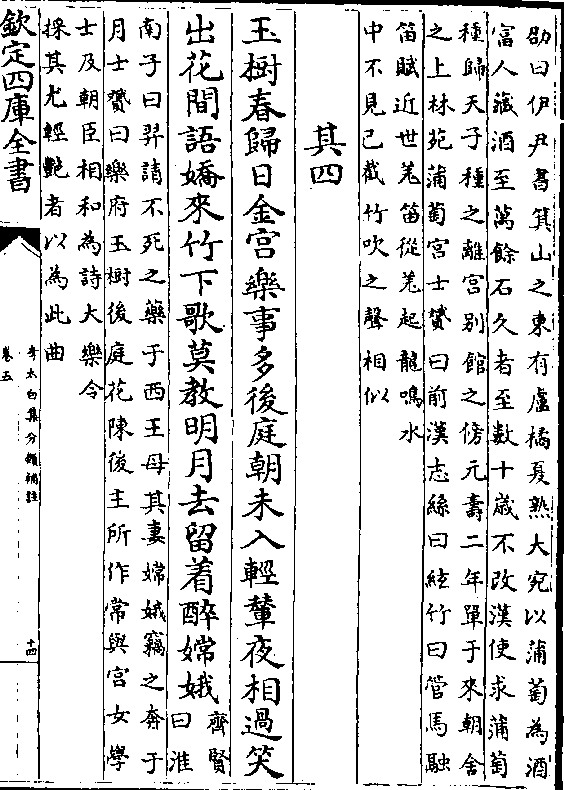 劭曰伊尹書箕山之東有盧橘夏熟大宛以蒲萄為酒
富人藏酒至萬餘石久者至數十歲不改漢使求蒲萄
種歸天子種之離宮别館之傍元壽二年單于來朝舍
之上林苑蒲萄宮士贇曰前漢志絲曰絃竹曰管馬融
笛賦近世羌笛從羌起龍鳴水
中不見已截竹吹之聲相似
其四
玉樹春歸日金宮樂事多後庭朝未入輕輦夜相過笑
出花間語嬌來竹下歌莫教明月去留着醉嫦娥齊賢
曰淮
南子曰羿請不死之藥于西王母其妻嫦娥竊之奔于
月士贇曰樂府玉樹後庭花陳後主所作常與宮女學
士及朝臣相和為詩大樂令
採其尤輕艷者以為此曲
欽定四庫全書
卷五
李太白集分類補註
十四